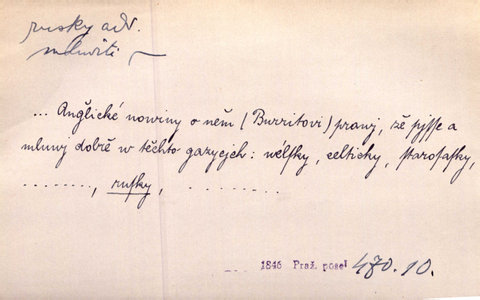 rusky adv.
mluviti ~
... Anglické nowiny o něm (Burritovi) prawj, že pjsse a
mluwj dobře w těchto gazycjch: wélsky, celticky, starosasky,
........, rusky, . ........
1846 Praž. posel 470.10.